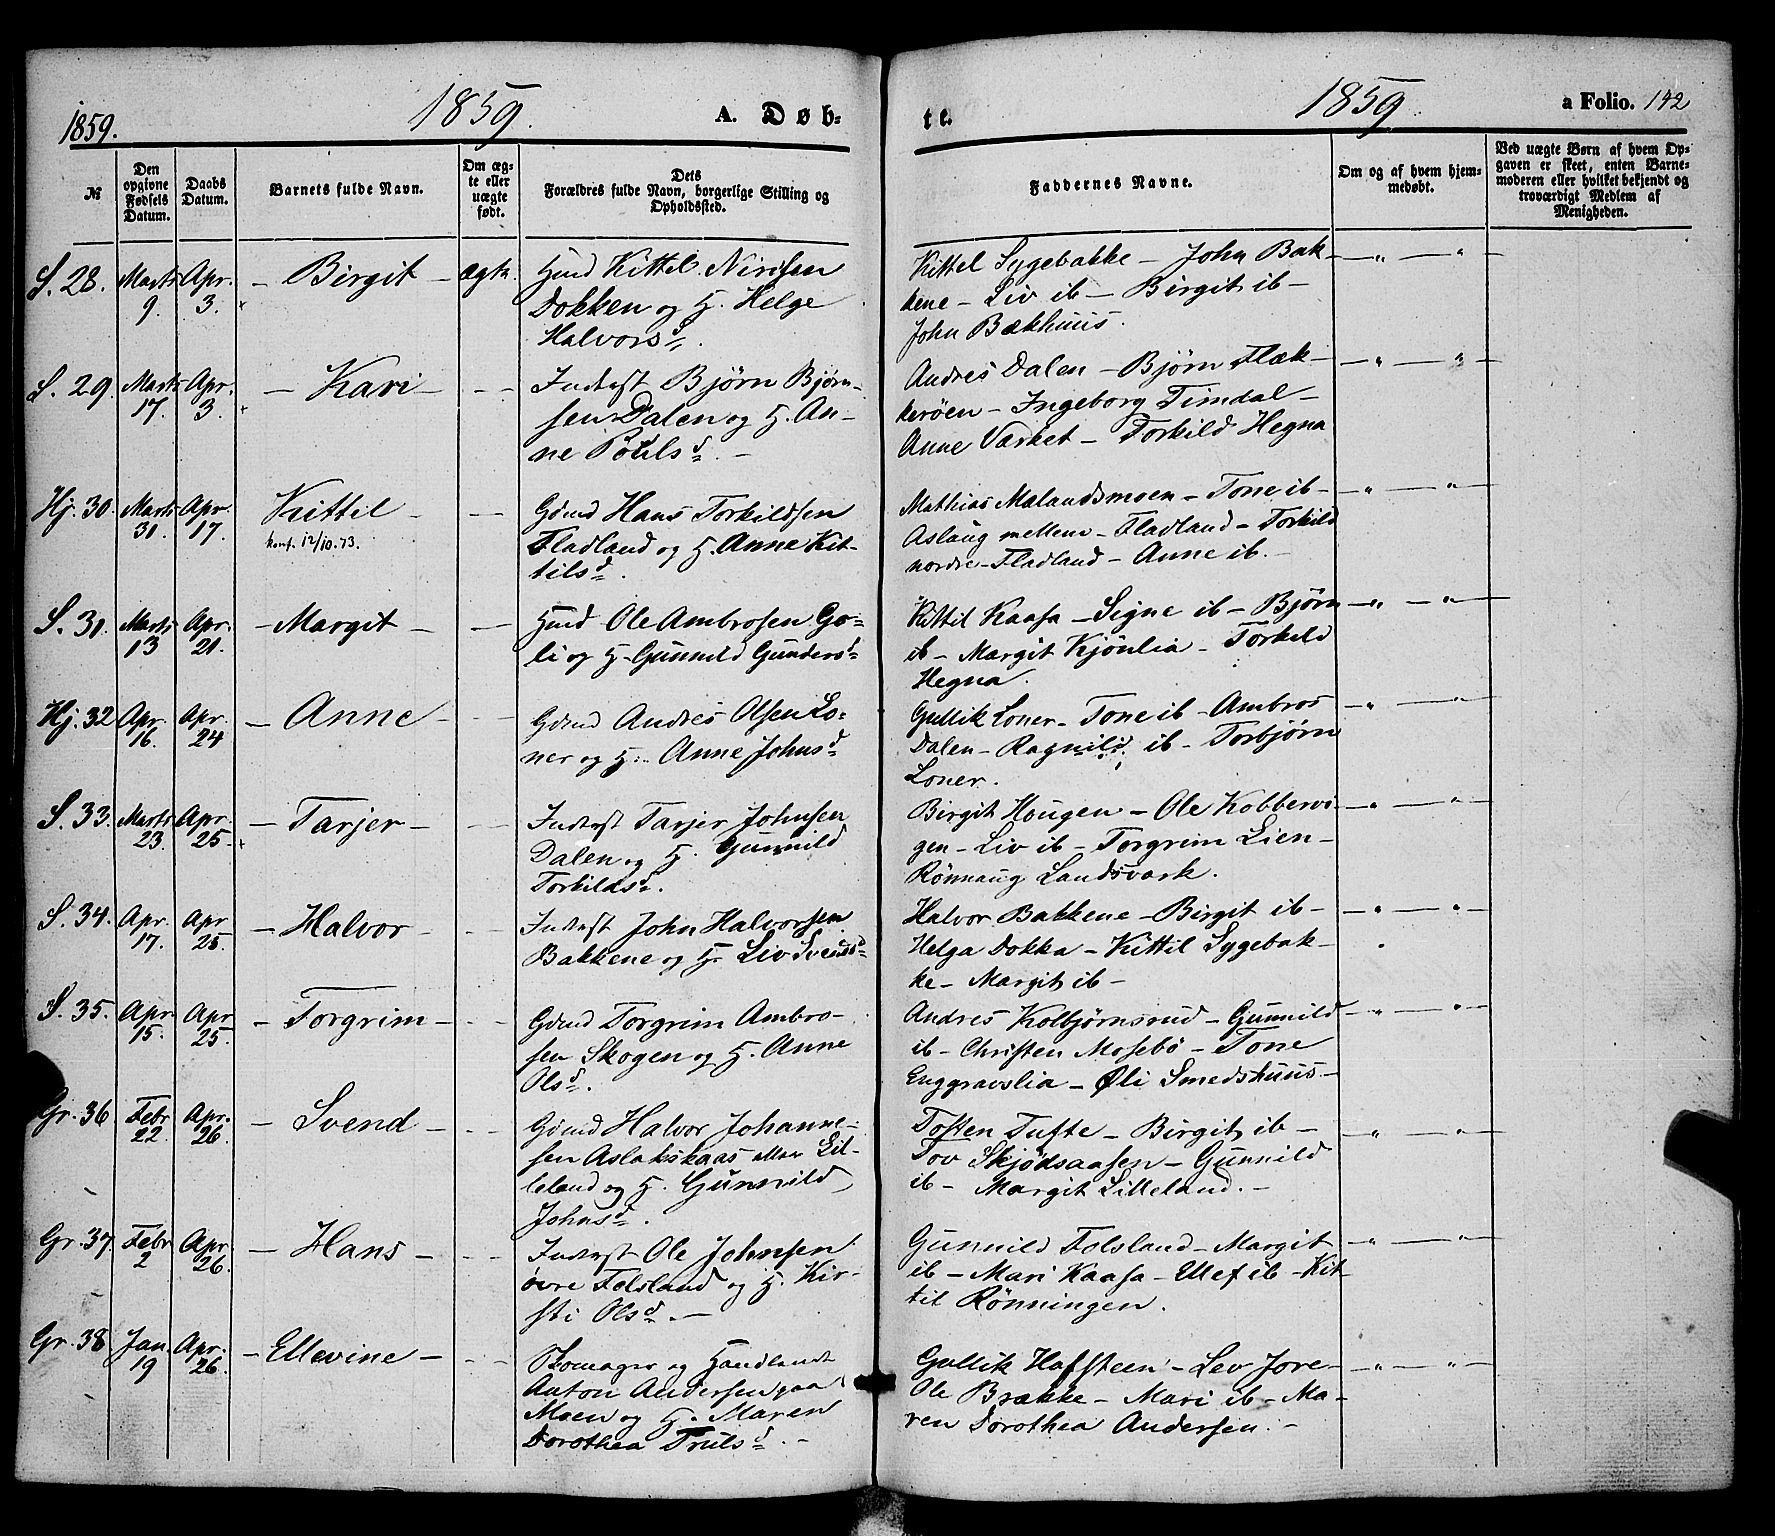 1859.
1859.
A. Døb-
te.
1859.
a Folio. 142
№
Den opgivne Fødsels Datum.
Daabs Datum.
Barnets fulde Navn.
Om ægte eller uægte født.
Dets Forældres fulde Navn, borgerlige Stilling og Opholdssted.
Faddernes Navne.
Om og af hvem hjemmedøbt.
Ved uægte Børn af hvem Opgaven er skeet, enten Barnemoderen eller hvilket bekjendt og troværdigt Medlem af Menigheden.
S. 28. Marts 9. Apr. 3. – Birgit – ægte.
Hmd Kittel
Dokken og H. Helge
Halvorsd.
Kittel Sygebakke – John Bak-
kene – Liv ib – Birgit ib –
John Bækhuus.
S. 29. Marts 17. Apr. 3. – Kari –
Inderst Bjørn Bjørn-
sen Dalen og H. An-
ne Poulsd. –
Andres Dalen – Bjørn Flæk-
kerøen – Ingeborg Timdal –
Anne Værket – Torkild Hegna
Hj. 30. Marts 31. Apr. 17. Kittil –
konf. 12/10.73.
Gdmd Hans Torkildsen
Fladland og H. Anne Kit-
tilsd.
Mathias Mælandsmoen – Tone ib –
Aslaug mellem – Fladland – Torkild
nordre – Fladland – Anne ib. –
S. 31. Marts 13 Apr. 21. – Margit –
Hmd Ole Ambrosen Go-
li og H. Gunnild Gundersd.
Kittil Kaasa – Signe ib – Bjørn
ib – Margit Kjønlia – Torkild
Hegna.
Hj. 32 Apr. 16. Apr. 24 – Anne –
Gdmd Andres Olsen Lo-
ner og H. Anne Johnsd.
Gullik Loner – Tone ib – Ambros
Dalen – Ragnild ib – Torbjørn
Loner.
S. 33. Marts 23. Apr. 25 – Tarjer –
Inderst Tarjer Johnsen
Dalen og H. Gunnild
Torkildsd.
Birgit Hougen – Ole Kobbervi-
gen – Liv ib – Torgrim Lien –
Rønnaug Landsværk.
S. 34. Apr. 17. Apr 25. – Halvor –
Inderst John Halvorsen
Bakkene og H. Liv Svensd.
Halvor Bakkene – Birgit ib –
Helga Dokka – Kittil Sygebak-
ke – Margit ib –
S. 35. Apr. 15. Apr 25. – Torgrim –
Gdmd Torgrim Ambro-
sen Skogen og H. Anne
Olsd.
Andres Kolbjørnsrud – Gunnild
ib – Christen Mosebø – Tone
Enggravslia – Øli Smedshuus –
Gr. 36 Febr 22. Apr. 26. – Svend –
Gdmd Halvor Johanne-
sen Aslakskaas eller Lil-
leland og H. Gunnild
Johnsd.
Tosten Tufte – Birgit ib –
Tov Skjødsaasen – Gunnild
ib – Margit Lilleland. –
Gr. 37 Febr 2 Apr. 26. – Hans –
Inderst Ole Johnsen
øvre Folsland og H. Kir-
sti Olsd. –
Gunnild Folsland – Margit
ib – Mari Kaasa – Ellef ib – Kit-
til Rønningen.
Gr. 38 Jan. 19 Apr. 26. – Ellevine –
Skomager og Handlende
Anton Andersen paa
Moen og H. Maren
Dorothea Trulsd. –
Gullik Hafsteen – Lev Jore –
Ole Brække – Mari ib – Ma-
ren Dorothea Andersen. –